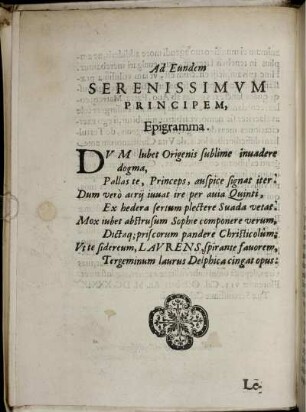 Ad Eundem
SERENISSIMVM
PRINCIPEM,
Epigramma.
DVM lubet Origenis sublime inuadere
dogma,
Pallas te, Princeps, auspice signat iter.
Dum verò aërij iuuat ire per auia Quinti,
Ex hedera sertum plectere Suada vetat.
Mox iubet abstrusum Sophie componere verum,
Dictaq; priscorum pandere Christicolûm;
Vt te sidereum, LAVRENS, spirante fauorem,
Tergeminum laurus Delphica cingat opus.